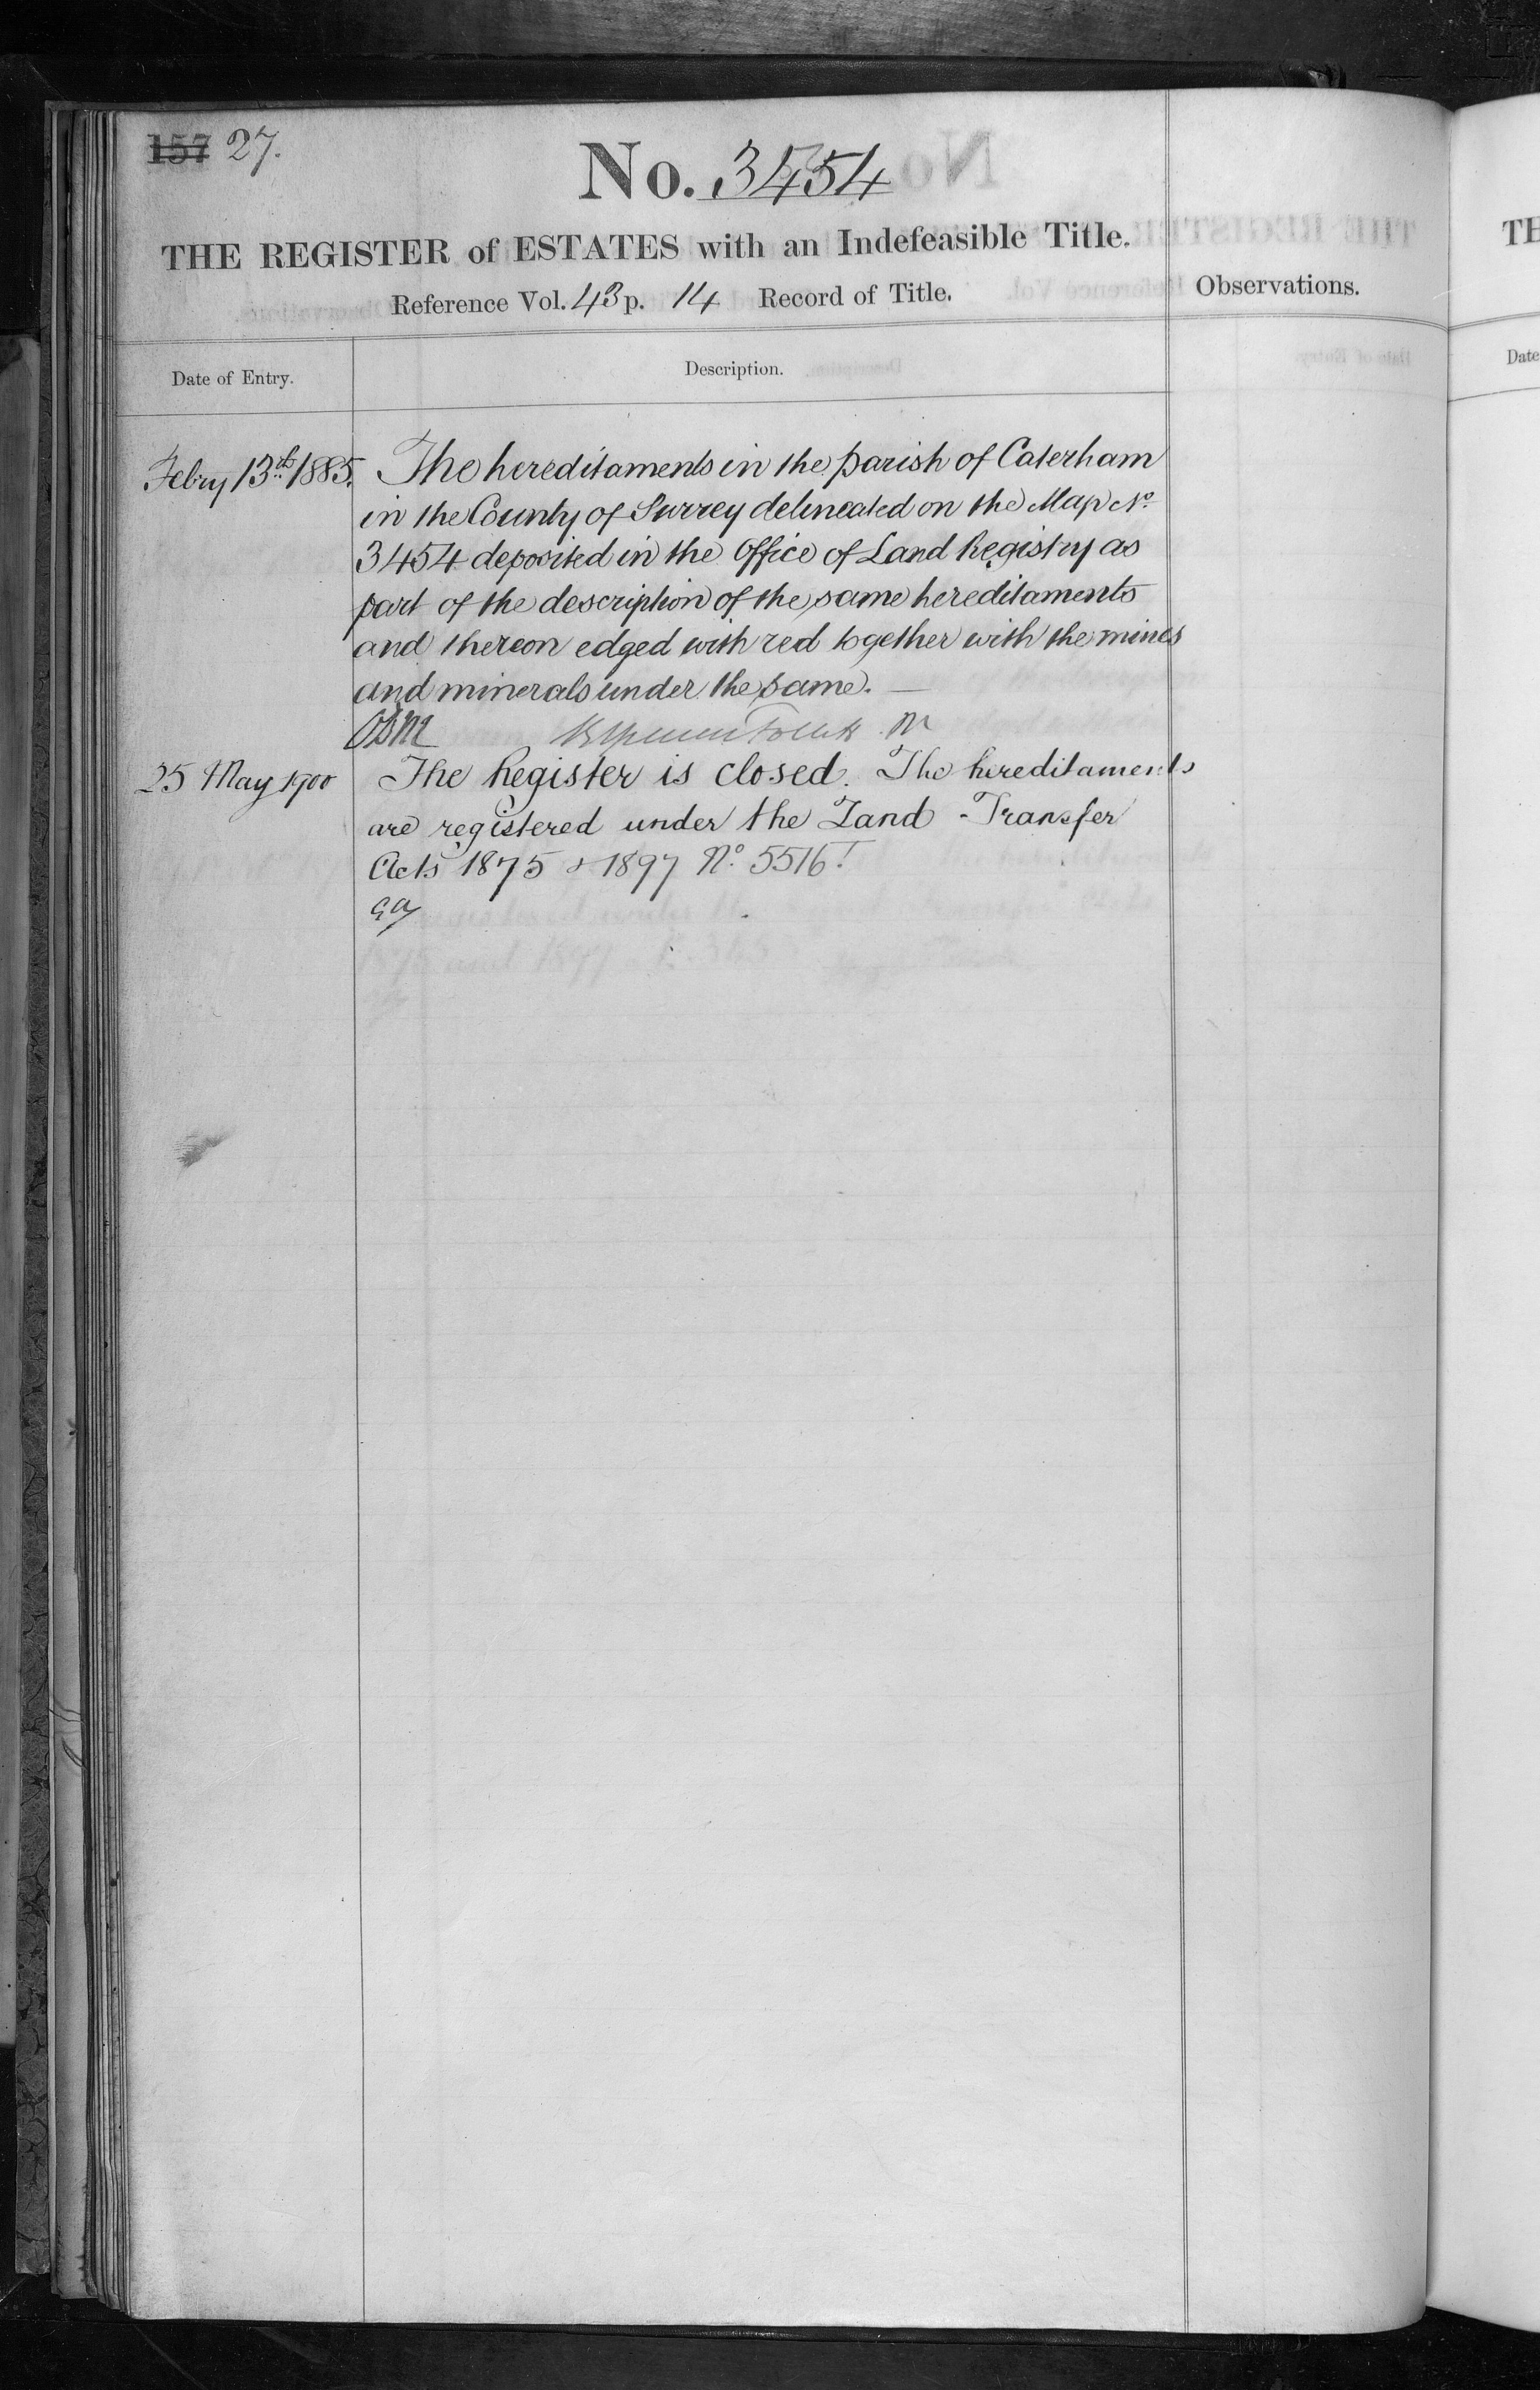 157 27.
No. 3454
THE REGISTER of ESTATES with an Indefeasible Title.
Reference Vol. 43 p. 14 Record of Title.
Observations.
Date of Entry.
Description.
Febry 13th 1885.
The hereditaments in the parish of Caterham
in the County of Surrey delineated on the Map No
3454 deposited in the Office of Land Registry as
part of the description of the same hereditaments
and thereon edged with red together with the mines
and minerals under the same.
25 May 1900
The Register is closed. The hereditaments
are registered under the Land Transfer
Acts 1875 & 1897 No. 5516